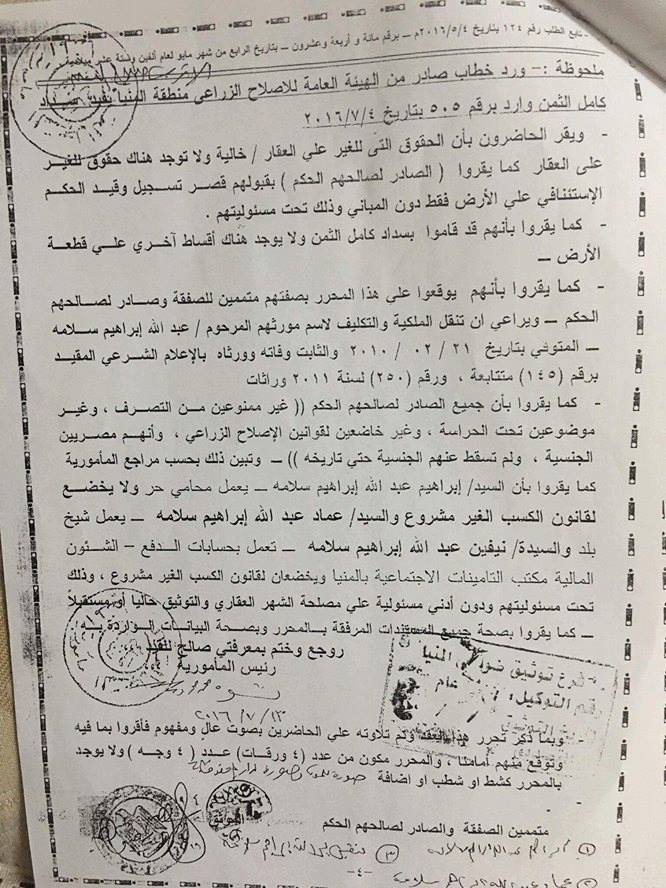 تابع الطلب رقم ١٢٤ بتاريخ ٢٠١٦/٥/٤م ــ برقم مائة و أربعة وعشرون ــ بتاريخ الرابع من شهر مايو لعام ألفين وستة عشر ميلادية
ملحوظة :- ورد خطاب صادر من الهيئة العامة للاصلاح الزراعي منطقة المنيا يفيد سداد
كامل الثمن وارد برقم ٥٠٥ بتاريخ ٢٠١٦/٧/٤
- ويقر الحاضرون بأن الحقوق التى للغير علي العقار / خالية ولا توجد هناك حقوق للغير
على العقار كما يقروا ( الصادر لصالحهم الحكم ) بقبولهم قصر تسجيل وقيد الحكم
الإستئنافي علي الأرض فقط دون المباني وذلك تحت مسئوليتهم .
- كما يقروا بأنهم قد قاموا بسداد كامل الثمن ولا يوجد هناك أقساط آخري علي قطعة
الأرض ــ
- كما يقروا بأنهم يوقعوا علي هذا المحرر بصفتهم متممين للصفقة وصادر لصالحهم
الحكم ــ ويراعي ان تنقل الملكية والتكليف لاسم مورثهم المرحوم / عبد الله إبراهيم سلامه
ــ المتوفي بتاريخ ٢١ / ٠٢ / ٢٠١٠ والثابت وفاته وورثاه بالإعلام الشرعي المقيد
برقم (١٤٥) متتابعة ، ورقم (٢٥٠) لسنة ٢٠١١ وراثات
- كما يقروا بأن جميع الصادر لصالحهم الحكم (( غير ممنوعين من التصرف ، وغير
موضوعين تحت الحراسة ، وغير خاضعين لقوانين الإصلاح الزراعي ، وأنهم مصريين
الجنسية ، ولم تسقط عنهم الجنسية حتي تاريخه )) ــ وتبين ذلك بحسب مراجع المأمورية
كما يقروا بأن السيد/ إبراهيم عبد الله إبراهيم سلامه ــ يعمل محامي حر ولا يخضع
لقانون الكسب الغير مشروع والسيد/ عماد عبد الله إبراهيم سلامه ــ يعمل شيخ
بلد والسيدة/ نيفين عبد الله إبراهيم سلامه ــ تعمل بحسابات الدفع – الشئون
المالية مكتب التامينات الاجتماعية بالمنيا ويخضعان لقانون الكسب الغير مشروع ، وذلك
تحت مسئوليتهم ودون أدني مسئولية علي مصلحة الشهر العقاري والتوثيق حاليا أو مستقبلاً
ــ كما يقروا بصحة جميع المستندات المرفقة بالمحرر وبصحة البيانات الواردة به
روجع وختم بمعرفتي صالح للقيد
رئيس المأمورية
فرع توثيق
المنيا
رقم التوكيل
عام
٢٠١٦/٧/١٣
- وبما ذكر تحرر هذا العقد وتم تلاوته علي الحاضرين بصوت عال ومفهوم فأقروا بما فيه
وتوقع منهم أمامنا ، والمحرر مكون من عدد (٤ ورقات) عدد ( ٤ وجه ) ولا يوجد
بالمحرر كشط او شطب او اضافة
الموثق
متممين الصفقة والصادر لصالحهم الحكم
-٤-